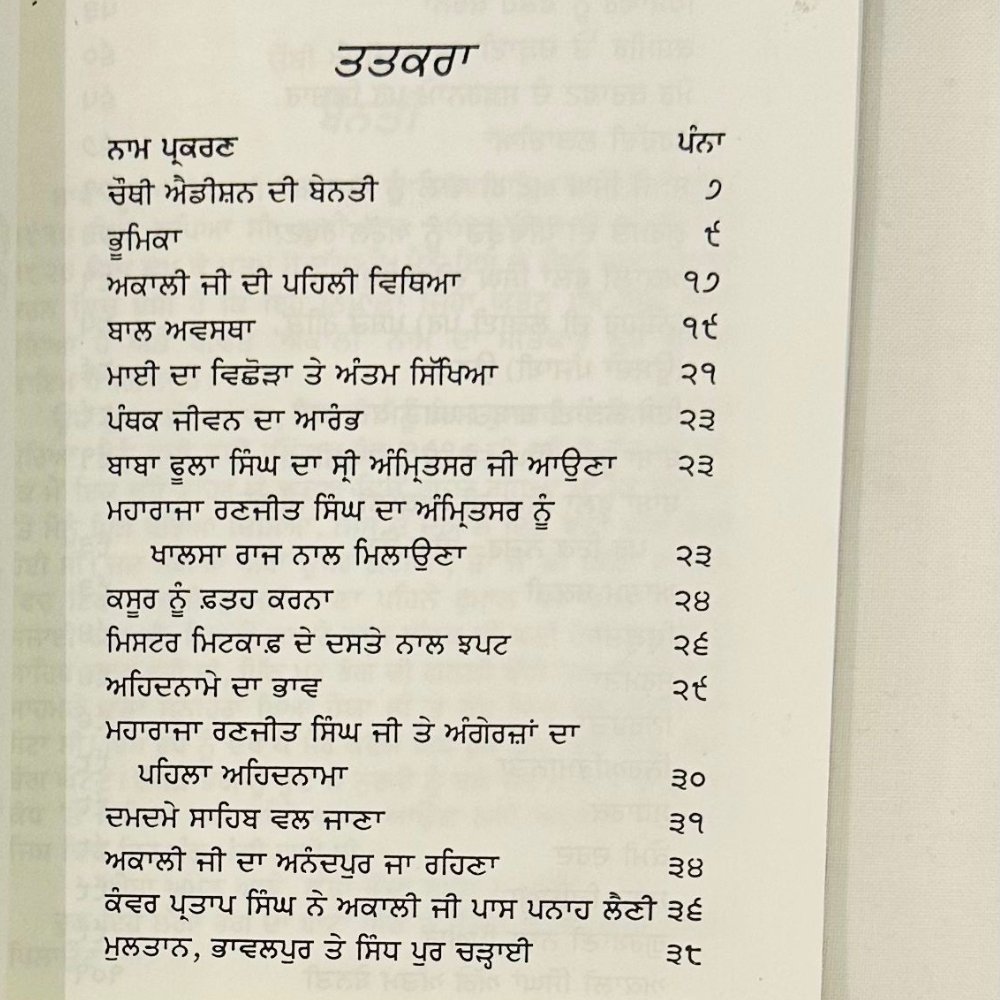 ਤਤਕਰਾ
ਨਾਮ ਪ੍ਰਕਰਣ ਪੰਨਾ
ਚੌਥੀ ਐਡੀਸ਼ਨ ਦੀ ਬੇਨਤੀ ੭
ਭੂਮਿਕਾ ੯
ਅਕਾਲੀ ਜੀ ਦੀ ਪਹਿਲੀ ਵਿਥਿਆ ੧੭
ਬਾਲ ਅਵਸਥਾ ੧੯
ਮਾਈ ਦਾ ਵਿਛੋੜਾ ਤੇ ਅੰਤਮ ਸਿੱਖਿਆ ੨੧
ਪੰਥਕ ਜੀਵਨ ਦਾ ਆਰੰਭ ੨੩
ਬਾਬਾ ਫੂਲਾ ਸਿੰਘ ਦਾ ਸ੍ਰੀ ਅੰਮ੍ਰਿਤਸਰ ਜੀ ਆਉਣਾ ੨੩
ਮਹਾਰਾਜਾ ਰਣਜੀਤ ਸਿੰਘ ਦਾ ਅੰਮ੍ਰਿਤਸਰ ਨੂੰ
ਖਾਲਸਾ ਰਾਜ ਨਾਲ ਮਿਲਾਉਣਾ ੨੩
ਕਸੂਰ ਨੂੰ ਫ਼ਤਹ ਕਰਨਾ ੨੪
ਮਿਸਟਰ ਮਿਟਕਾਫ਼ ਦੇ ਦਸਤੇ ਨਾਲ ਝਪਟ ੨੬
ਅਹਿਦਨਾਮੇ ਦਾ ਭਾਵ ੨੯
ਮਹਾਰਾਜਾ ਰਣਜੀਤ ਸਿੰਘ ਜੀ ਤੇ ਅੰਗੇਰਜ਼ਾਂ ਦਾ
ਪਹਿਲਾ ਅਹਿਦਨਾਮਾ ੩੦
ਦਮਦਮੇ ਸਾਹਿਬ ਵਲ ਜਾਣਾ ੩੧
ਅਕਾਲੀ ਜੀ ਦਾ ਅਨੰਦਪੁਰ ਜਾ ਰਹਿਣਾ ੩੪
ਕੰਵਰ ਪ੍ਰਤਾਪ ਸਿੰਘ ਨੇ ਅਕਾਲੀ ਜੀ ਪਾਸ ਪਨਾਹ ਲੈਣੀ ੩੬
ਮੁਲਤਾਨ, ਭਾਵਲਪੁਰ ਤੇ ਸਿੰਧ ਪੁਰ ਚੜ੍ਹਾਈ ੩੮